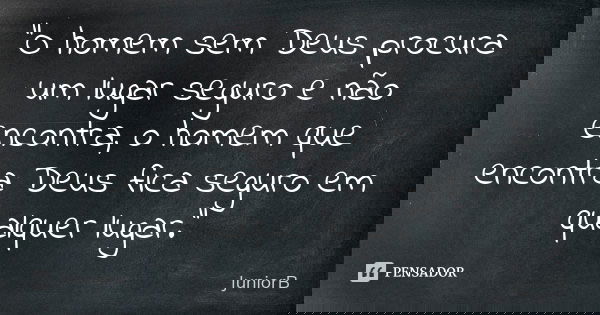 "o homem sem Deus procura
um lugar seguro e não
encontra, o homem que
encontra Deus fica seguro em
qualquer lugar."
JuniorB
PENSADOR